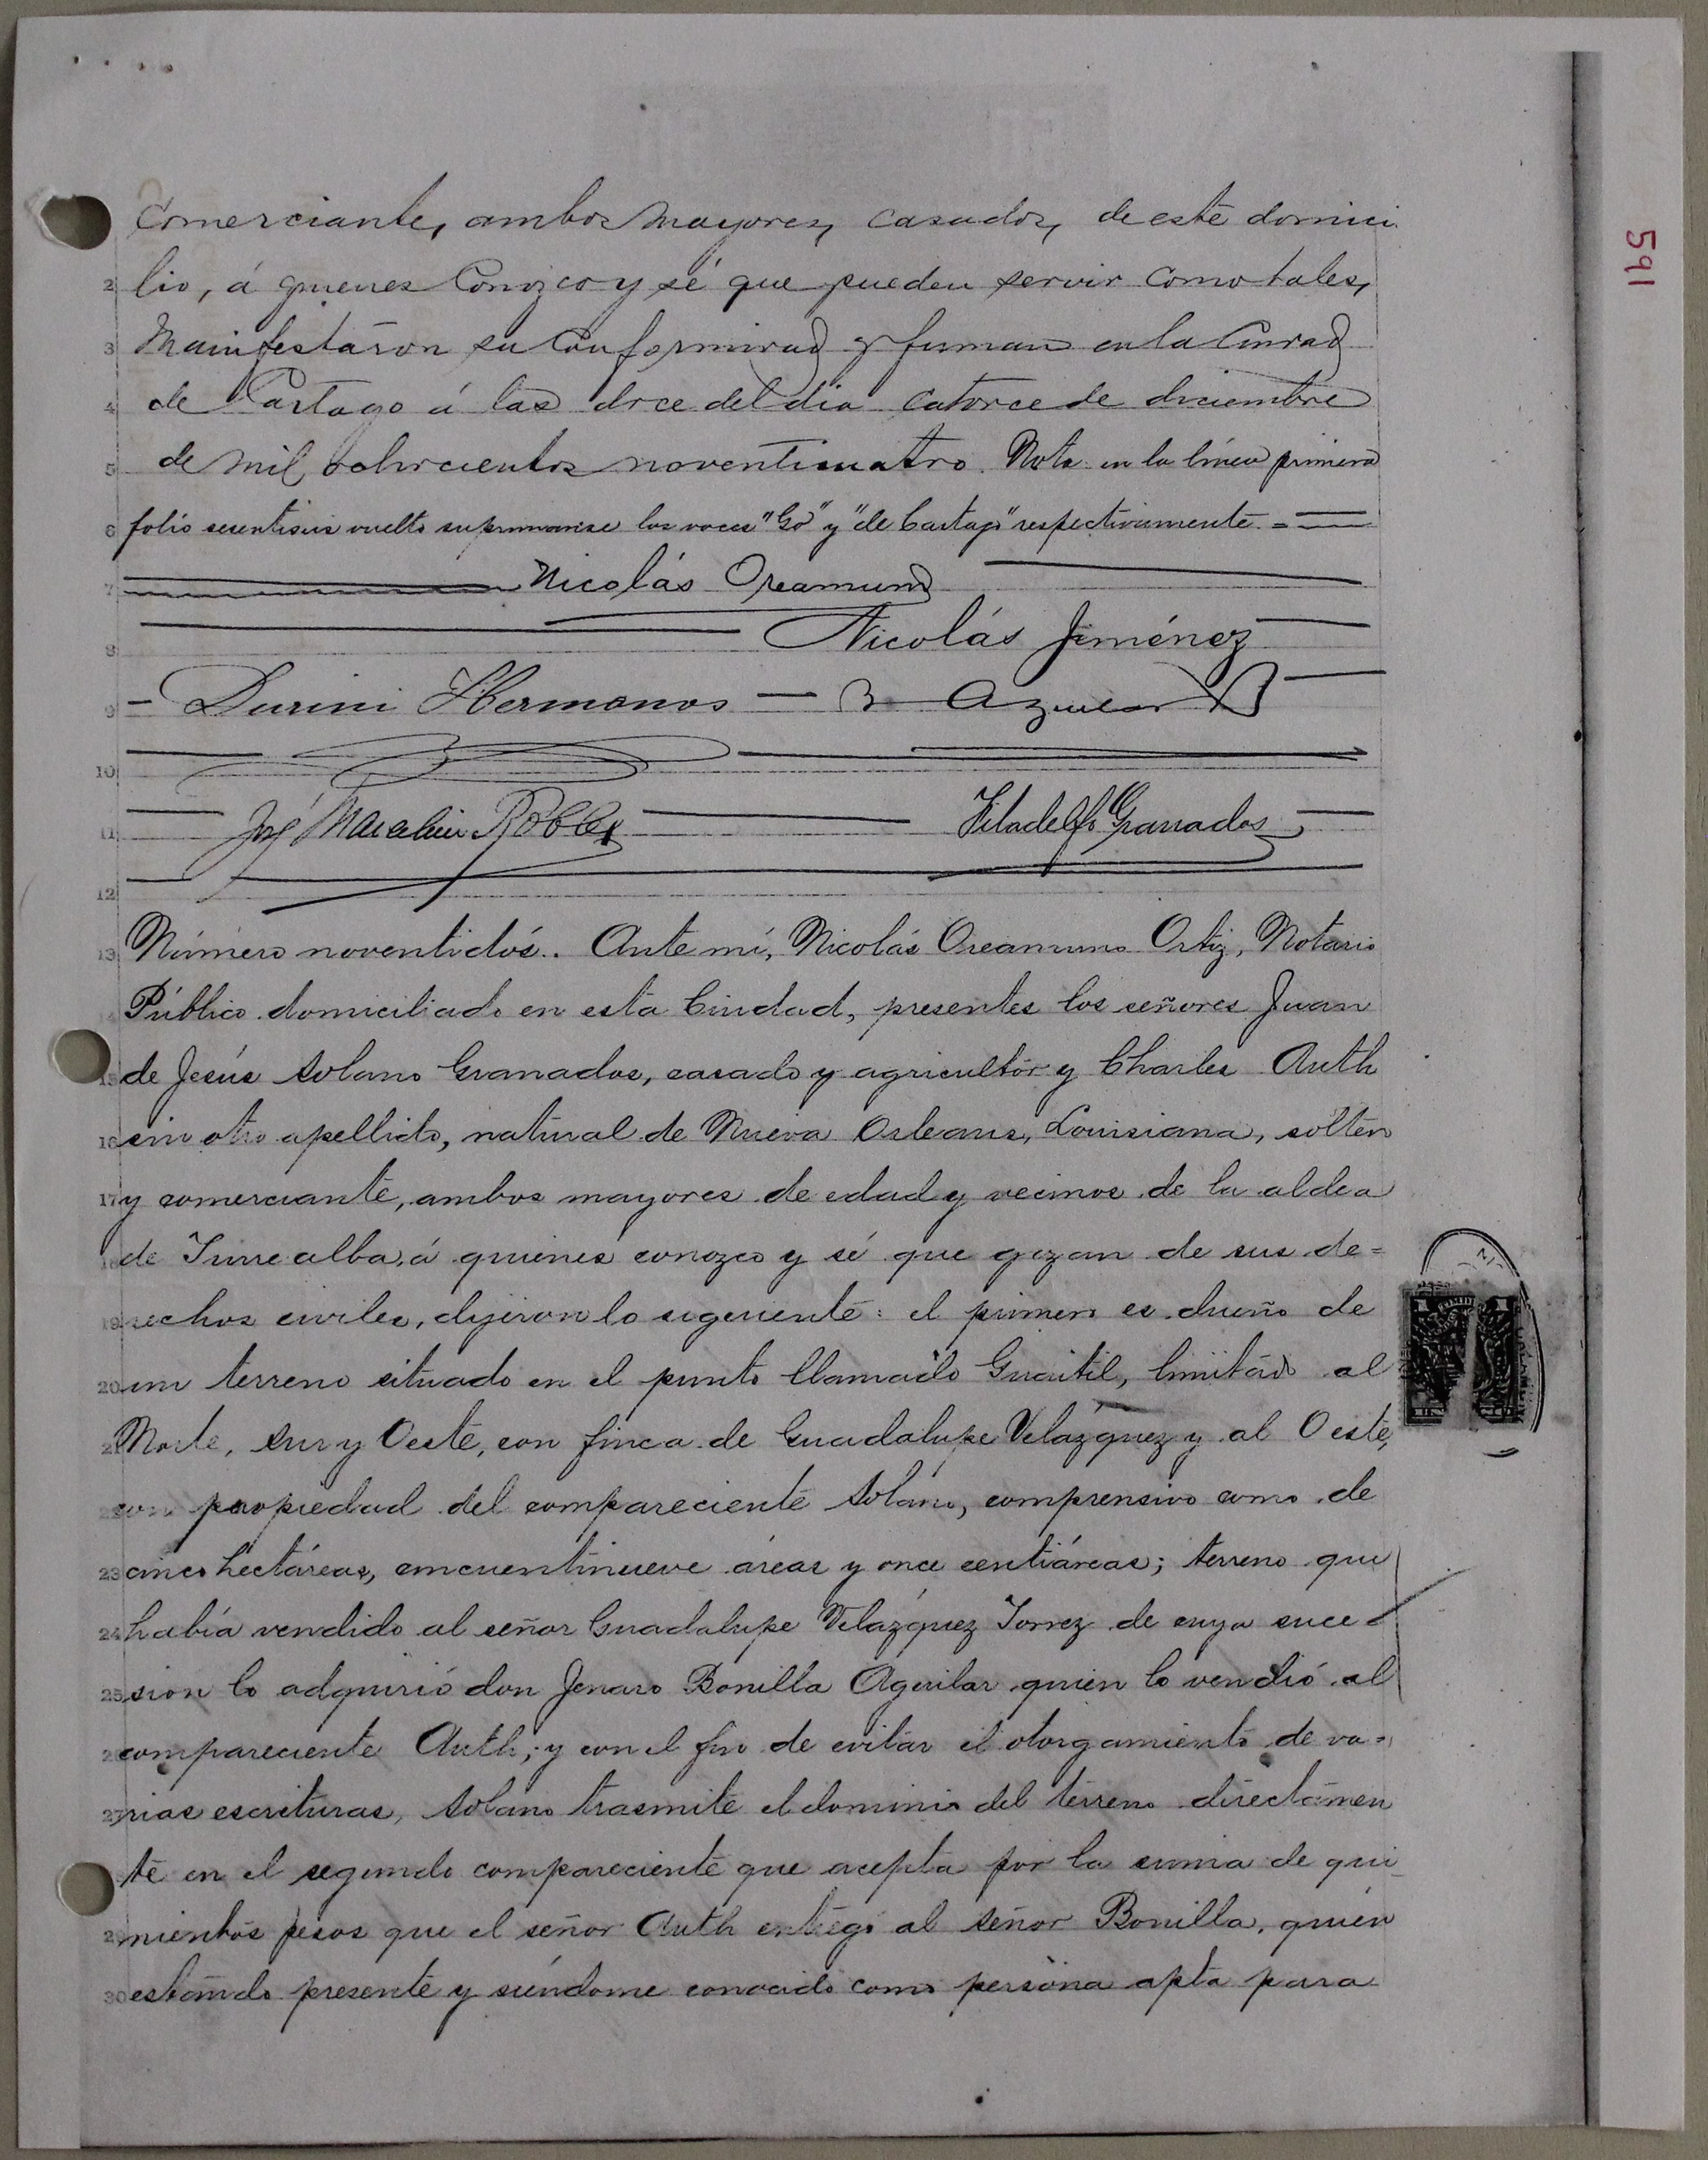 591
Comerciante, ambos mayores, casados, de este domici
2 lio, á quienes conozco y sé que pueden servir como tales,
3 Manifestaron su conformidad y firman en la Ciudad
4 de Cartago á las doce del dia catorce de diciembre
5 de mil ochocientos noventicuatro. Nota: en la línea primera
6 folio sesentiseis vuelto suprimanse las voces "Go" y "de Cartago" respectivamente. =
7 Nicolás Oreamuno
8 Nicolás Jiménez
9 - Durini Hermanos -
10
11 José Robles Filadelfo Granados
12
13 Número noventidós.. Ante mí, Nicolás Oreamuno Ortiz, Notario
Público domiciliado en esta Ciudad, presentes los señores Juan
15 de Jesús Solano Granados, casado y agricultór y Charles Auth
16 sin otro apellido, natural de Nueva Orleans, Louisiana, solter
17 y comerciante, ambos mayores de edad y vecinos de la aldea
18 de Turrealba, á quienes conozco y sé que gozan de sus de=
19 rechos civiles, dijeron lo siguiente: el primero es dueño de
20 un terreno situado en el punto llamado Guaitil, limitado al
21 Norte, Sur y Oeste, con finca de Guadalupe Velázquez y al Oeste,
22 con propiedad del compareciente Solano, comprensivo como de
23 cinco hectáreas, cincuentinueve áreas y once centiáreas; terreno que
24 había vendido al señor Guadalupe Velázquez Torrez de cuya suce=
25 sion lo adquirió don Jenaro Bonilla Aguilar quien lo vendió al
26 compareciente Auth; y con el fin de evitar el otorgamiento de va=
27 rias escrituras, Solano trasmite el dominio del terreno directamen
te en el segundo compareciente que acepta por la suma de qui
29 nientos pesos que el señor Auth entregó al señor Bonilla, quien
30 estando presente y siéndome conocido como persona apta para